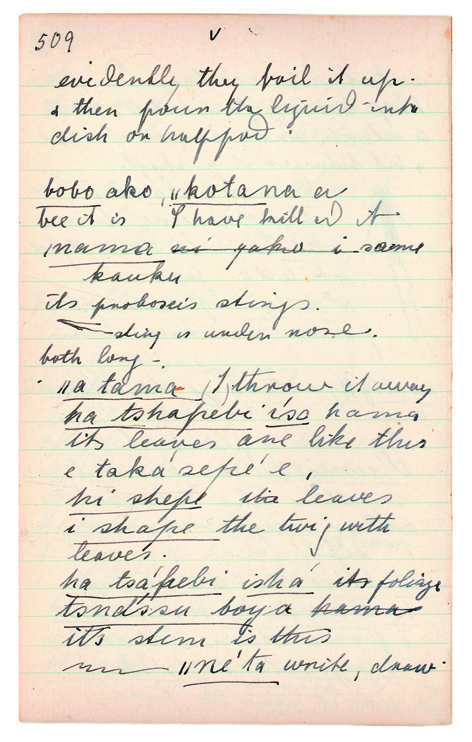 509 v
evidently they boil it up.
& then pour the liquid into
dish or half pod.
bobo ako, "kotana a
bee it is I have killed it
nama ni yako i same
kauku
its proboscis stings.
sting is under nose.
both long -
"a tama (I) throw it away
ha tshapebi íso hama
its leaves are like this
e taká sefé e,
hi shepi its leaves
i shape the twig with
leaves.
ha tsápebi ishá its foliage
tsnássu boya hama
its stem is this
"né ta write, draw